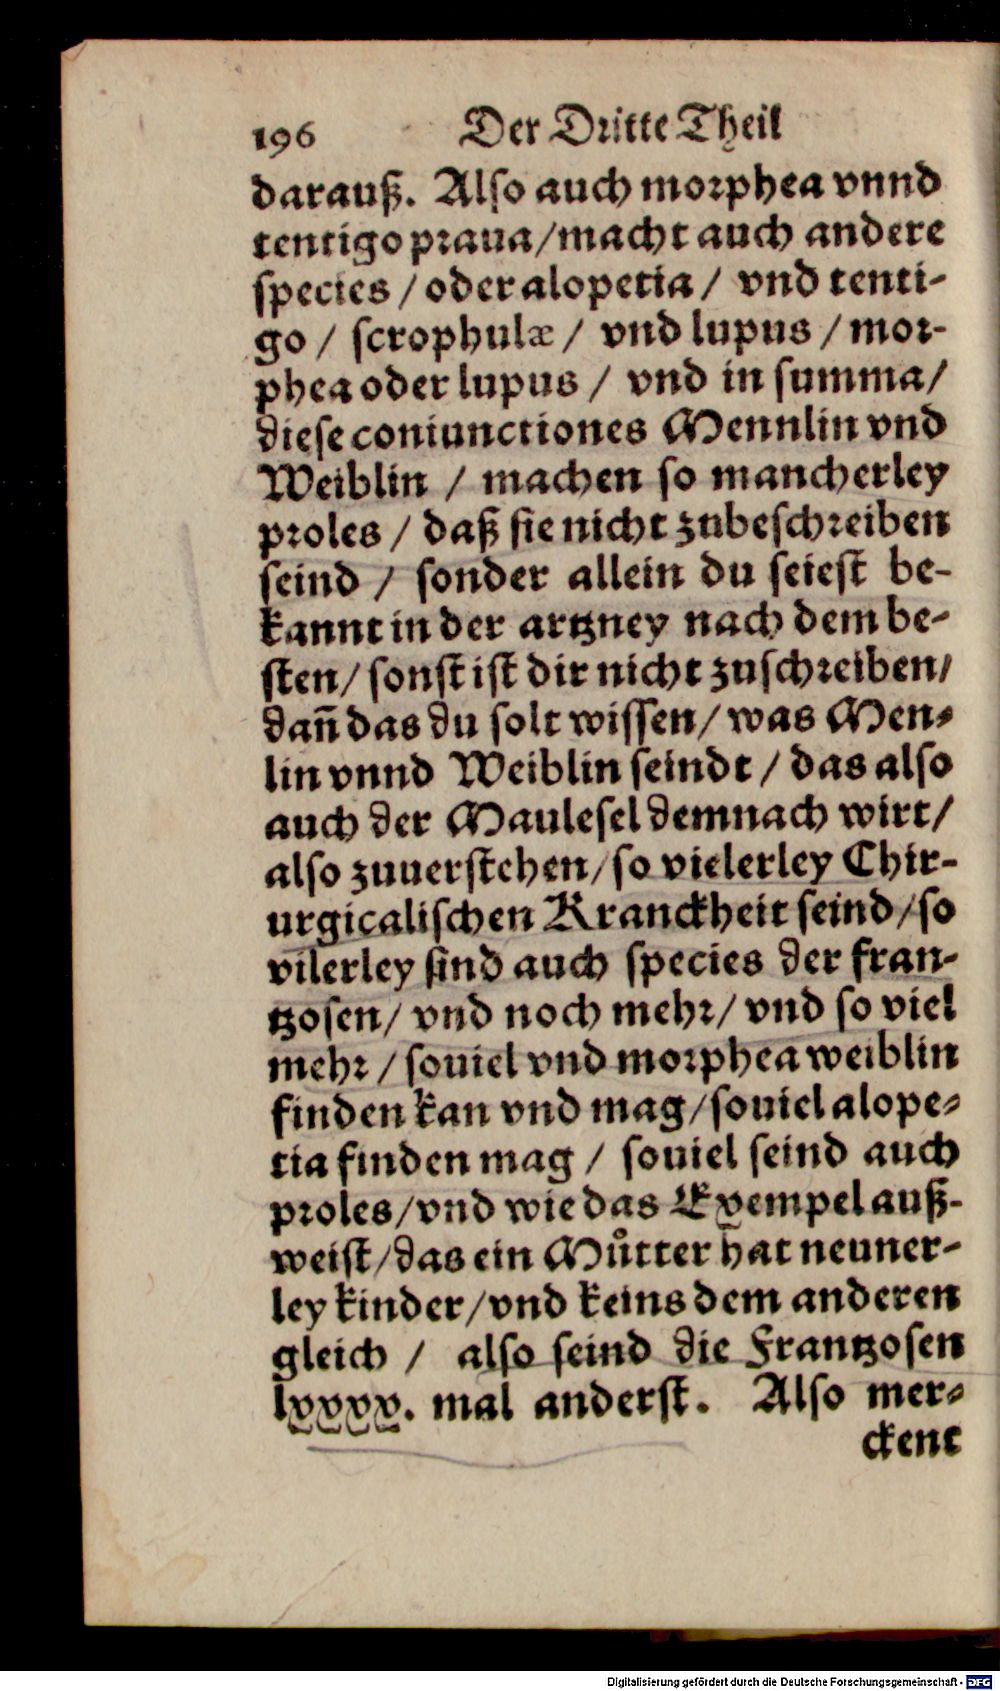 196 Der Dritte Theil
darauß. Also auch morphea vnnd
tentigo praua/macht auch andere
species / oder alopetia / vnd tenti-
go / scrophulæ / vnd lupus / mor-
phea oder lupus / vnd in summa/
diese coniunctiones Mennlin vnd
Weiblin / machen so mancherley
proles / daß sie nicht zubeschreiben
seind / sonder allein du seiest be-
kannt in der artzney nach dem be-
sten/ sonst ist dir nicht zuschreiben/
dañ das du solt wissen/ was Men-
lin vnnd Weiblin seindt / das also
auch der Maulesel demnach wirt/
also zuuerstehen/so vielerley Chir-
urgicalischen Kranckheit seind/so
vilerley sind auch species der fran-
tzosen/ vnd noch mehr/ vnd so viel
mehr / souiel vnd morphea weiblin
finden kan vnd mag/souiel alope-
tia finden mag / souiel seind auch
proles/vnd wie das Exempel auß-
weist/das ein Můtter hat neuner-
ley kinder/vnd keins dem anderen
gleich / also seind die Frantzosen
lxxxx. mal anderst. Also mer-
ckent
Digitalisierung gefördert durch die Deutsche Forschungsgemeinschaft - DFG